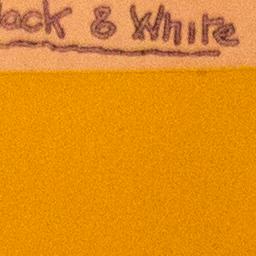 lack & White